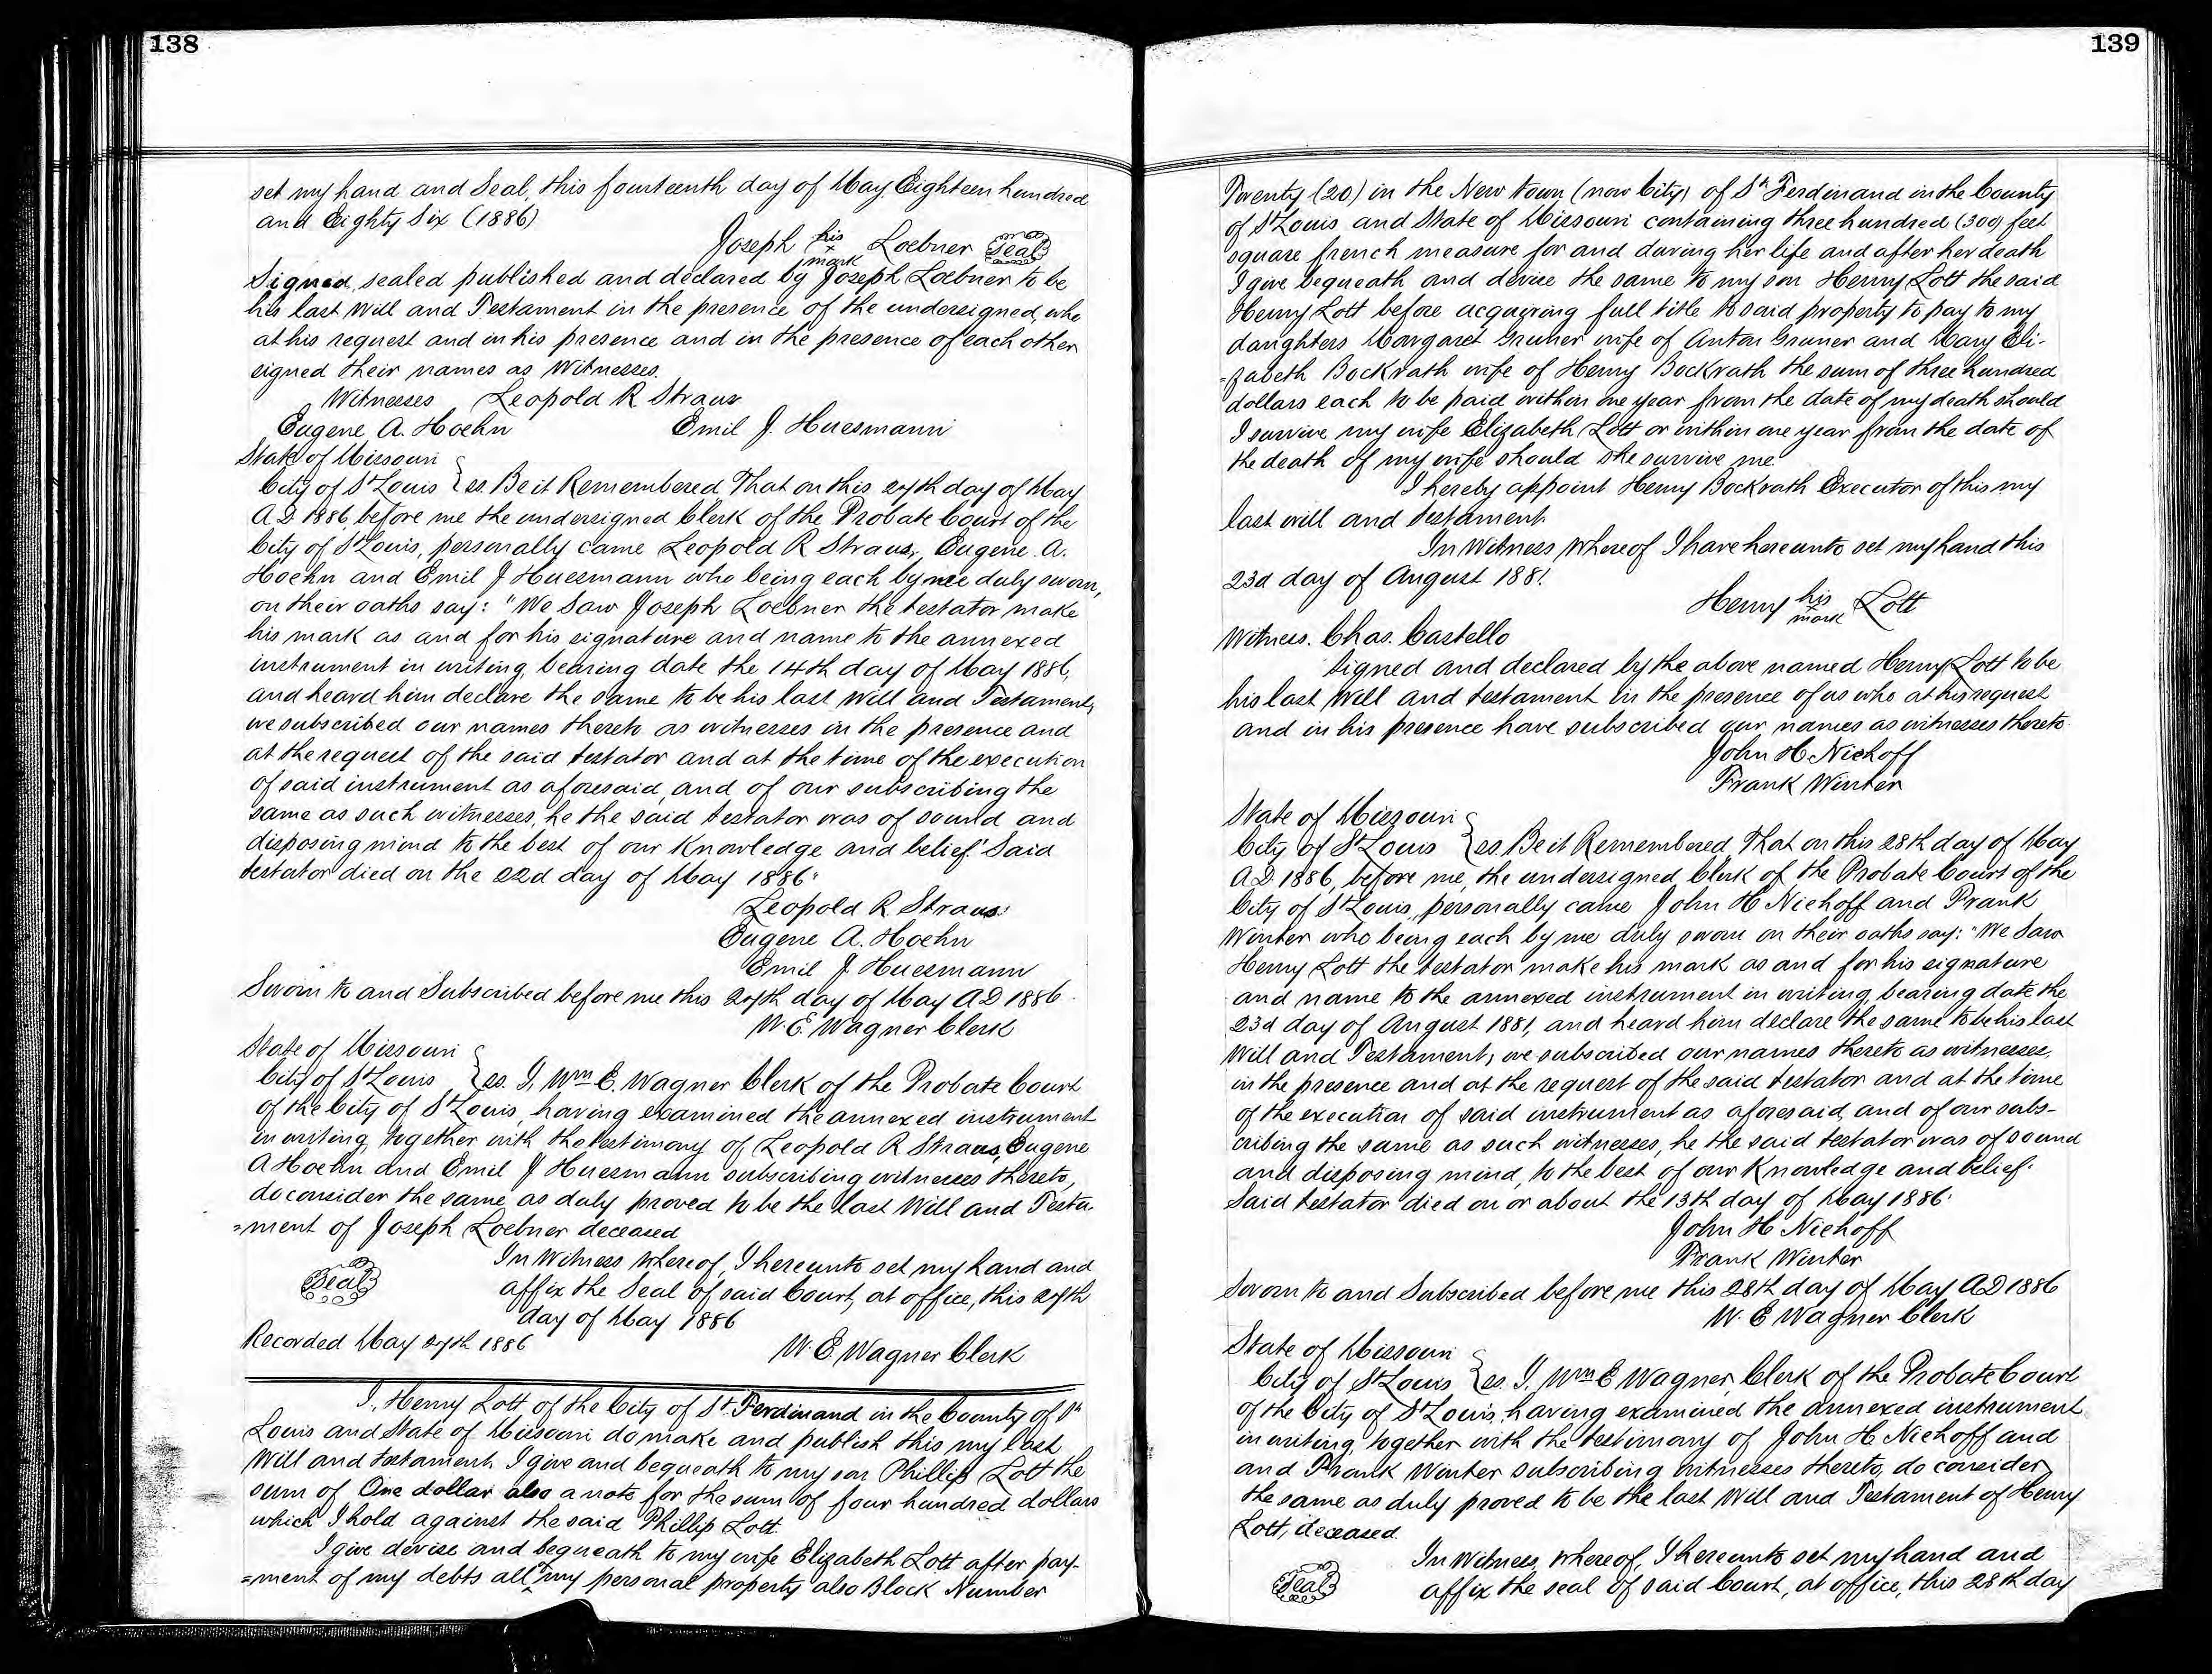 138
set my hand and Seal, this fourteenth day of May Eighteen hundred
and Eighty Six (1886)
Joseph his Loebner Seal
x
mark
Signed, sealed published and declared by Joseph Loebner to be
his last Will and Testament in the presence of the undersigned, who
at his request and in his presence and in the presence of each other
signed their names as Witnesses.
Witnesses Leopold R Straus
Eugene A. Hoehn Emil J. Huesmann
State of Missouri
City of St Louis } ss. Be it Remembered, That on this 27th day of May
A D 1886, before me the undersigned Clerk of the Probate Court of the
City of St Louis, personally came Leopold R Straus, Eugene A.
Hoehn and Emil J Huesmann who being each by me duly sworn,
on their oaths say: "We Saw Joseph Loebner the testator make
his mark as and for his signature and name to the annexed
instrument in writing, bearing date the 14th day of May 1886,
and heard him declare the same to be his last Will and Testament,
we subscribed our names thereto as witnesses in the presence and
at the request of the said testator and at the time of the execution
of said instrument as aforesaid, and of our subscribing the
same as such witnesses, he the said testator was of sound and
disposing mind to the best of our Knowledge and belief." Said
testator died on the 22d day of May 1886"
Leopold R Straus
Eugene A. Hoehn
Emil J. Huesmann
Sworn to and Subscribed before me this 27th day of May A D 1886.
W. E. Wagner Clerk
State of Missouri
City of St Louis } ss. I, Wm E. Wagner Clerk of the Probate Court
of the City of St Louis, having examined the annexed instrument
in writing, together with the testimony of Leopold R Straus, Eugene
A Hoehn and Emil J Huesmann subscribing witnesses thereto,
do consider the same as duly proved to be the last Will and Testa-
=ment of Joseph Loebner deceased
In Witness whereof, I hereunto set my hand and
Seal affix the Seal of said Court, at office, this 27th
day of May 1886
Recorded May 27th 1886
W. E. Wagner Clerk
I, Henry Lott of the City of St. Ferdinand in the County of St
Louis and State of Missouri do make and publish this my last
Will and testament. I give and bequeath to my son Phillip Lott the
sum of One dollar also a note for the sum of four hundred dollars
which I hold against the said Phillip Lott.
I give devise and bequeath to my wife Elizabeth Lott after pay-
=ment of my debts all my personal property also Block Number
139
Twenty (20) in the New town (now City) of St Ferdinand in the County
of St Louis and State of Missouri containing three hundred (300) feet
square french measure for and during her life and after her death
I give bequeath and devise the same to my son Henry Lott the said
Henry Lott before acquiring full title to said property to pay to my
daughters Margaret Gruner wife of Anton Gruner and Mary Eli-
=zabeth Bockrath wife of Henry Bockrath the sum of three hundred
dollars each to be paid within one year from the date of my death should
I survive my wife Elizabeth Lott or within one year from the date of
the death of my wife should she survive me.
I hereby appoint Henry Bockrath Executor of this my
last will and testament.
In Witness whereof I have hereunto set my hand this
23d day of August 1881.
Henry his Lott
x
mark
Witness. Chas. Castello
Signed and declared by the above named Henry Lott to be
his last Will and testament in the presence of us who at his request
and in his presence have subscribed our names as witnesses thereto.
John H Niehoff
Frank Winter
State of Missouri
City of St Louis } ss. Be it Remembered, That on this 28th day of May
A D 1886, before me, the undersigned Clerk of the Probate Court of the
City of St Louis, personally came John H Niehoff and Frank
Winter who being each by me duly sworn on their oaths say: "We Saw
Henry Lott the testator make his mark as and for his signature
and name to the annexed instrument in writing, bearing date the
23d day of August 1881, and heard him declare the same to be his last
Will and Testament, we subscribed our names thereto as witnesses,
in the presence and at the request of the said testator and at the time
of the execution of said instrument as aforesaid, and of our subs-
cribing the same as such witnesses, he the said testator was of sound
and disposing mind, to the best of our Knowledge and belief.
Said testator died on or about the 13th day of May 1886"
John H Niehoff
Frank Winter
Sworn to and Subscribed before me this 28th day of May A D 1886
W. E Wagner Clerk
State of Missouri
City of St Louis } ss. I, Wm E Wagner, Clerk of the Probate Court
of the City of St Louis, having examined the annexed instrument
in writing, together with the testimony of John H Niehoff and
and Frank Winter subscribing witnesses thereto, do consider
the same as duly proved to be the last Will and Testament of Henry
Lott, deceased.
In Witness whereof, I hereunto set my hand and
Seal affix the seal of said Court, at office, this 28th day